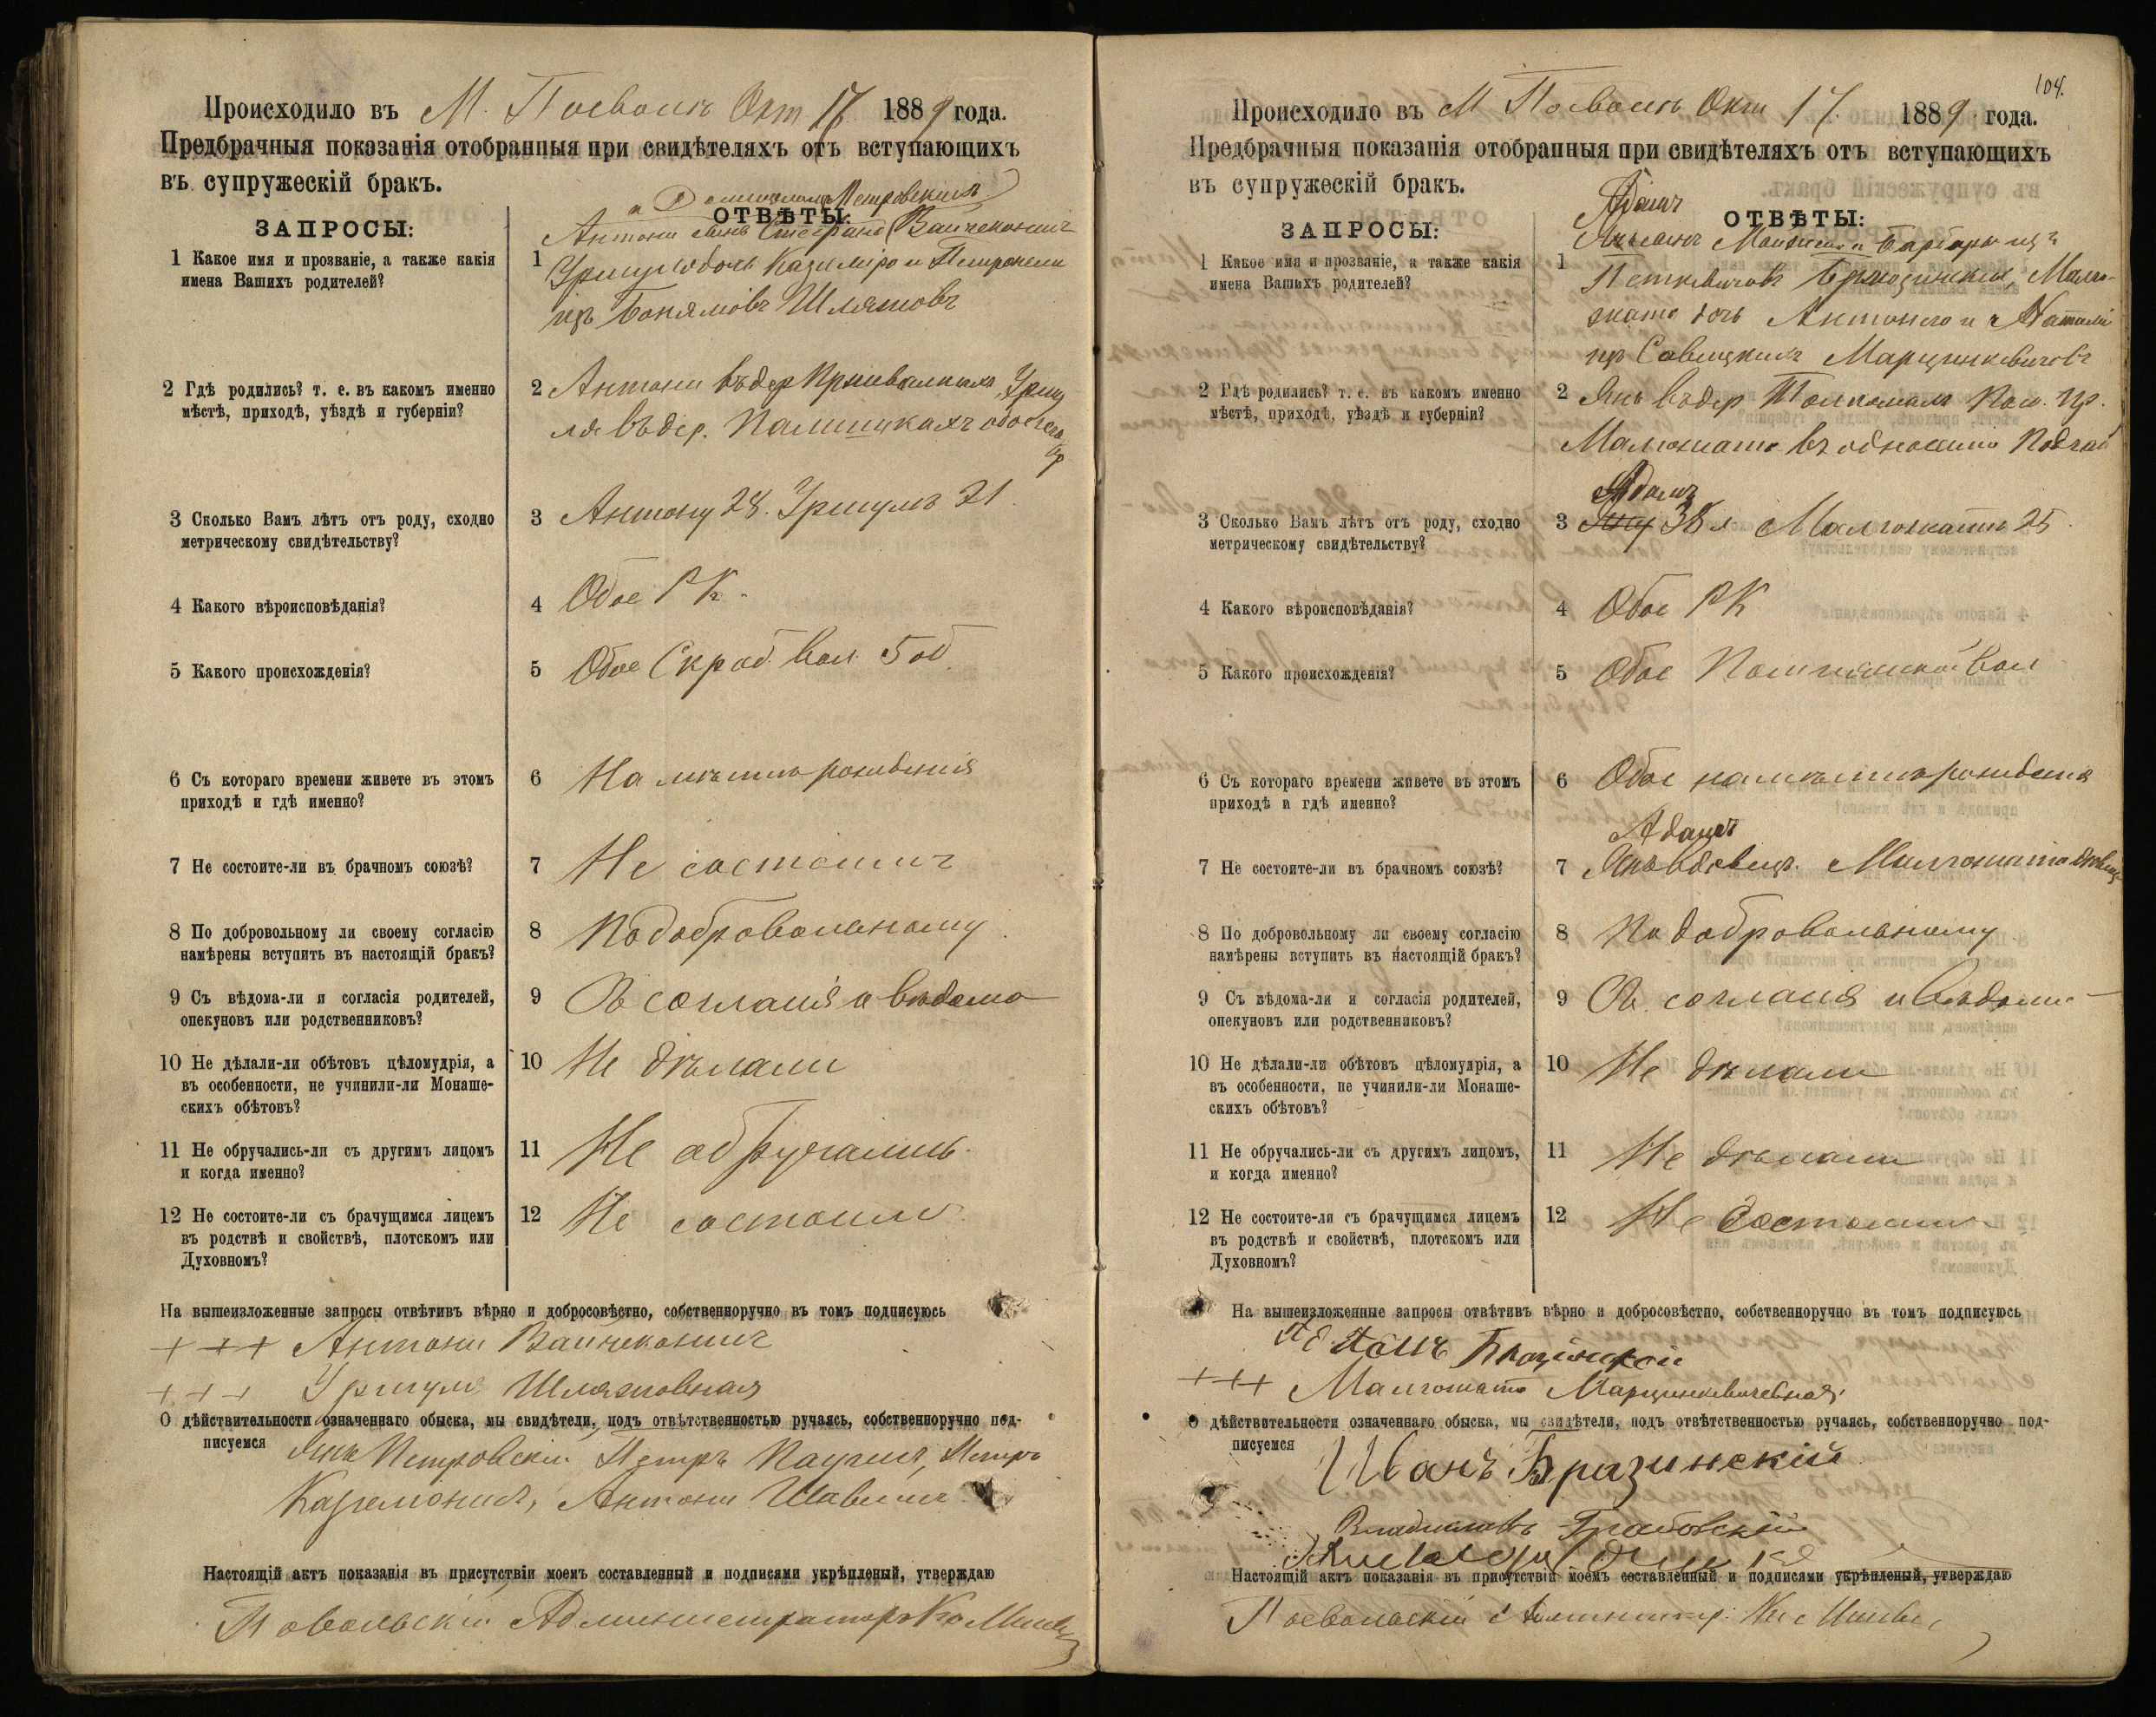 Происходило въ М. Посволь Окт 17. 1889 года.
Предбрачныя показанія отобранныя при свидѣтеляхъ отъ вступающихъ
въ супружескій бракъ.
Петровскихъ
ЗАПРОСЫ:
ОТВѢТЫ:
Антони сынъ Стефана Вайчеконисъ
1 Какое имя и прозваніе, а также какія
имена Вашихъ родителей?
1 Уршуля дочь Казимира и Петронели
изъ Шляжовъ
2 Гдѣ родились? т. е. въ какомъ именно
мѣстѣ, приходѣ, уѣздѣ и губерніи?
2 Антони въ дер Уршу
ля въ дер.
3 Сколько Вамъ лѣтъ отъ роду, сходно
метрическому свидѣтельству?
3 Антону 28. Уршулѣ 21.
4 Какого вѣроисповѣданія?
4 Обое РК.
5 Какого происхожденія?
5 Обое Скроб. вол. 5 об.
6 Съ котораго времени живете въ этомъ
приходѣ и гдѣ именно?
6 На мѣстѣ рожденія
7 Не состоите-ли въ брачномъ союзѣ?
7 Не состоимъ
8 По добровольному ли своему согласію
намѣрены вступить въ настоящій бракъ?
8 По добровольному
9 Съ вѣдома-ли и согласія родителей,
опекуновъ или родственниковъ?
9 Съ согласія и вѣдома
10 Не дѣлали-ли обѣтовъ цѣломудрія, а
въ особенности, не учинили-ли Монаше-
скихъ обѣтовъ?
10 Не дѣлали
11 Не обручались-ли съ другимъ лицомъ
и когда именно?
11 Не обручались.
12 Не состоите-ли съ брачущимся лицемъ
въ родствѣ и свойствѣ, плотскомъ или
Духовномъ?
12 Не состоимъ
На вышеизложенные запросы отвѣтивъ вѣрно и добросовѣстно, собственноручно въ томъ подписуюсь
+++ Антони Вайчеконисъ
+++ Уршуля Шляжовная
О дѣйствительности означеннаго обыска, мы свидѣтели, подъ отвѣтственностью ручаясь, собственноручно под-
писуемся Янъ Петровскій Петръ Петръ
Антони
Настоящій актъ показанія въ присутствіи моемъ составленный и подписями укрѣпленый, утверждаю
Посвольскій Администраторъ Кс
104.
Происходило въ М Посволь Окт 17. 1889 года.
Предбрачныя показанія отобранныя при свидѣтеляхъ отъ вступающихъ
въ супружескій бракъ.
Адамъ
ЗАПРОСЫ:
ОТВѢТЫ:
и Барбары изъ
1 Какое имя и прозваніе, а также какія
имена Вашихъ родителей?
1 Петкевичовъ Бразинскій, Малго-
жата дочь Антонего и Наталіи
изъ Савицкихъ Марцинкевичовъ
2 Гдѣ родились? т. е. въ какомъ именно
мѣстѣ, приходѣ, уѣздѣ и губерніи?
2 Янъ въ дер пр.
Малгожата въ
Адамъ
3 Сколько Вамъ лѣтъ отъ роду, сходно
метрическому свидѣтельству?
3 Яну 38 л Малгожатѣ 25.
4 Какого вѣроисповѣданія?
4 Обое РК
5 Какого происхожденія?
5 Обое вол
6 Съ котораго времени живете въ этомъ
приходѣ и гдѣ именно?
6 Обое на мѣстѣ рожденія
Адамъ
7 Не состоите-ли въ брачномъ союзѣ?
7 Янъ вдовецъ. Малгожата дѣвица
8 По добровольному ли своему согласію
намѣрены вступить въ настоящій бракъ?
8 По добровольному
9 Съ вѣдома-ли и согласія родителей,
опекуновъ или родственниковъ?
9 Съ согласія и вѣдома
10 Не дѣлали-ли обѣтовъ цѣломудрія, а
въ особенности, не учинили-ли Монаше-
скихъ обѣтовъ?
10 Не дѣлали
11 Не обручались-ли съ другимъ лицомъ,
и когда именно?
11 Не дѣлали
12 Не состоите-ли съ брачущимся лицемъ
въ родствѣ и свойствѣ, плотскомъ или
Духовномъ?
12 Не состоимъ
На вышеизложенные запросы отвѣтивъ вѣрно и добросовѣстно, собственноручно въ томъ подписуюсь
+++ Малгожата Марцинкевичевная
О дѣйствительности означеннаго обыска, мы свидѣтели, подъ отвѣтственностью ручаясь, собственноручно под-
писуемся Иванъ Бразинскій
Владиславъ Грабовскій
Настоящій актъ показанія въ присутствіи моемъ составленный и подписями укрѣпленый, утверждаю
Посвольскій